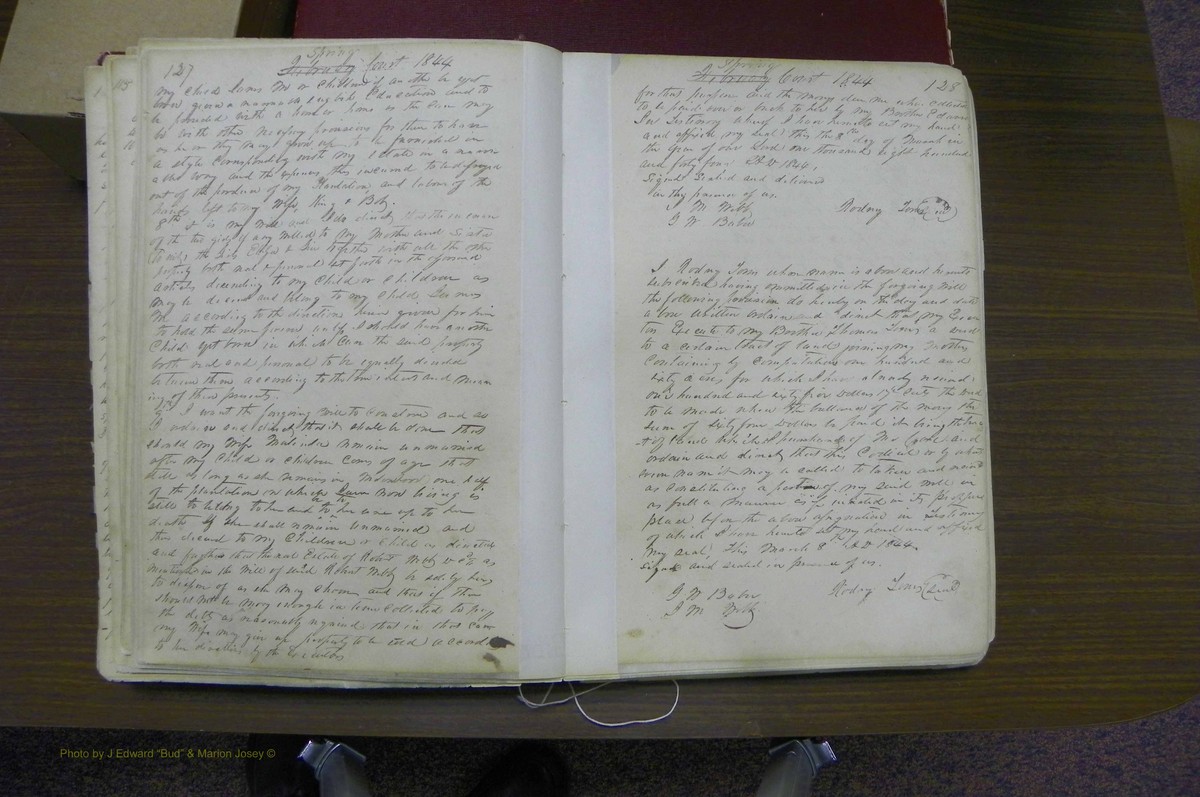 127
Spring
February Court 1844
my child James M or Children if another be yet
born given a manner a english Education and to
be provided with a home in the case may
be with other necessary provisions for them to have
as he or they may grow up to be furnished in
a style corresponding with my estate in a
way and the expenses thus incurred to be defrayed
out of the produce of my Plantation and labour of the
hands left to my wife, king & Bob.
8th It is my will and I do direct that the increase
of the two girls if any willed to my Mother and Sister
together with all the other
property both real & personal set forth in the aforesaid
articles descending to my child or children as
may be devised and belong to my child James
M according to the direction here given for him
to hold the same forever and if I should have another
child yet born in which case the said property
both real and personal to be equally divided
between them according to the true intent and mean
ing of these presents.
9th I want the forgoing will to Constrew and as
I ordain and direct that it shall be done that
should my wife Malinda remain unmarried
after my child or children come of age that
still as long as she remains in widowhood one half
of the plantation on which I am now living is
still to belong to her and to her use up to her
death if she shall remain unmarried and
then descend to my children or child as directed
and further that the real Estate of Robert
mentioned in the will of said Robert be sold by being
to dispose of as she may choose and that if there
should not be money enough in time collected to pay
the debts as reasonably required that in that case
my wife may give up property to be sold according
to her direction by the Executors
Spring
February Court 1844
128
for that purpose and the money when collected
to be paid over or back to her by my Brother
In Testimony whereof I have hereunto set my hand
and affixed my seal this the 8th day of March in
the year of our Lord one thousand eight hundred
and forty four A D 1844.
Signed Sealed and delivered
in the presence of us.
J M
J W Baber
Rodny Tomes (Seal)
I Rodny Tomes whose name is above and hereunto
subscribed having ommitted in the forgoing will
the following provision do hereby on the day and date
above written ordain and direct that my Execu
tor Execute to my Brother Thomas Tomes a deed
to a certain tract of land joining my Mother
Containing by Computation one hundred and
sixty acres for which I have already received
one hundred and sixty five dollars the deed
to be made when the ballance of the money the
sum of sixty four Dollars is paid it being the tra
ct of land which I purchased of and
ordain and direct that this Codicil or by what
ever name it may be called to be taken and received
as constituting a part of my said will in
as full a manner as if inserted in its proper
place before the above signature in Testimony
of which I have hereunto set my hand and affixed
my seal, this March 8th A D 1844.
Signed and sealed in presence of us.
J W Baber
J M
Rodny Tomes (Seal)
Photo by J Edward "Bud" & Marion Josey ©